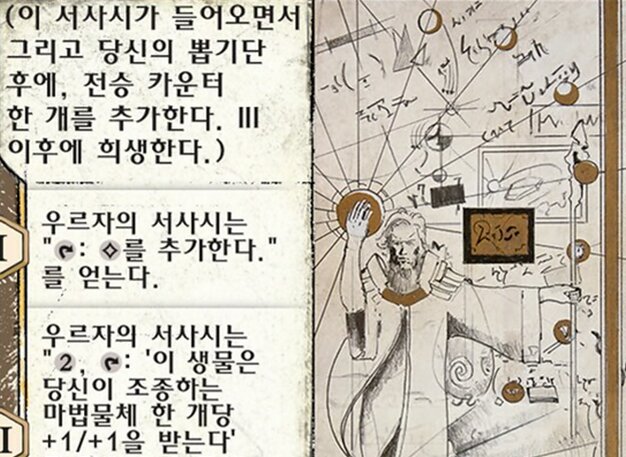 (이 서사시가 들어오면서
그리고 당신의 뽑기단
후에, 전승 카운터
한 개를 추가한다. III
이후에 희생한다.)
I
우르자의 서사시는
": 를 추가한다."
를 얻는다.
I
우르자의 서사시는
"2, : '이 생물은
당신이 조종하는
마법물체 한 개당
+1/+1을 받는다'